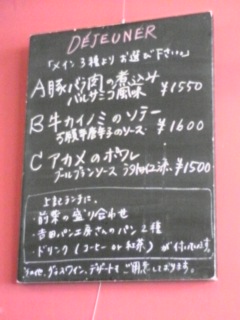 DÉJEUNER
「メイン3種よりお選び下さい」
A豚バラ肉の煮込み
バルサミコ風味 ¥1550
B牛カイノミのソテー
万願寺唐辛子のソース ¥1600
Cアカメのポワレ
ブールブランソース ¥1500
上記ランチに、
前菜の盛り合わせ
吉田パン工房さんのパン2種
ドリンク(コーヒー or 紅茶)が付いています。
グラスワイン、デザートもご用意しております。